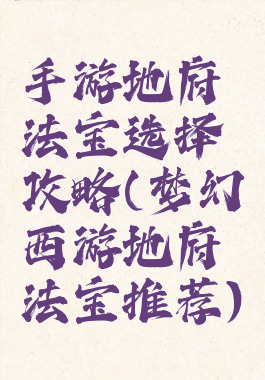 手游地府
法宝选择
攻略(梦幻
西游地府
法宝推荐)